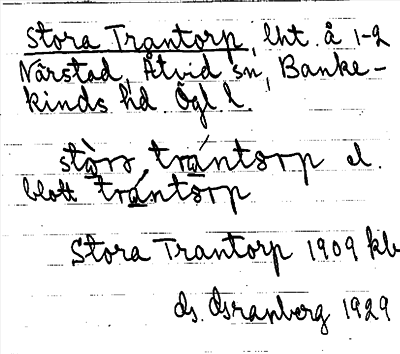 Stora Trantorp, lht. å 1-2
Närstad, Åtvid sn, Banke-
kinds hd Ögl l.
stòrɔ trántɔrp el.
blott trántɔrp
Stora Trantorp 1909 kb
ds.
1929